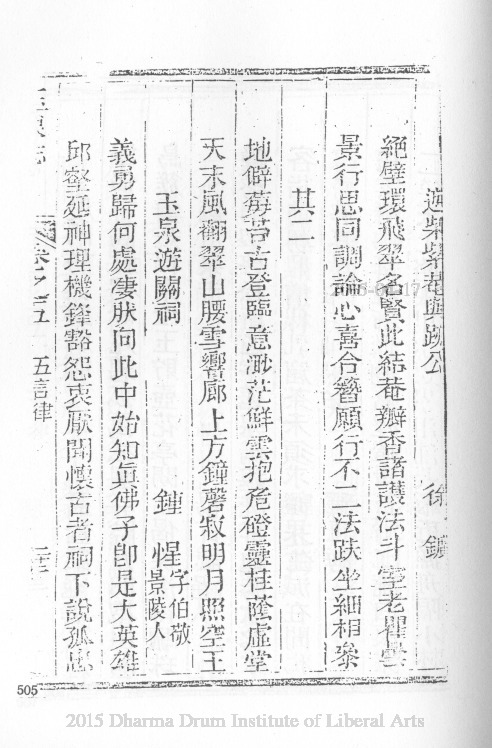 過紫紫菴與跡公　徐　鑛
絕壁環飛翠名賢此結菴瓣香諳護法斗室老瞿曇
景行思同調論心喜合簪願行不二法趺坐細相叅
其二
地僻莓苔古登臨意渺茫鮮雲抱危磴靈桂蔭虛堂
天末風翻翠山腰雪響廊上方鐘磬寂明月照空王
玉泉遊關祠　鍾　惺字伯敬景陵人
義勇歸何處凄肰向此中始知眞佛子卽是大英雄
邱壑延神理機鋒豁怨衷厭聞懷古者祠下說孤忠
玉泉志　卷之五　五言律　二十三
505
2015 Dharma Drum Institute of Liberal Arts